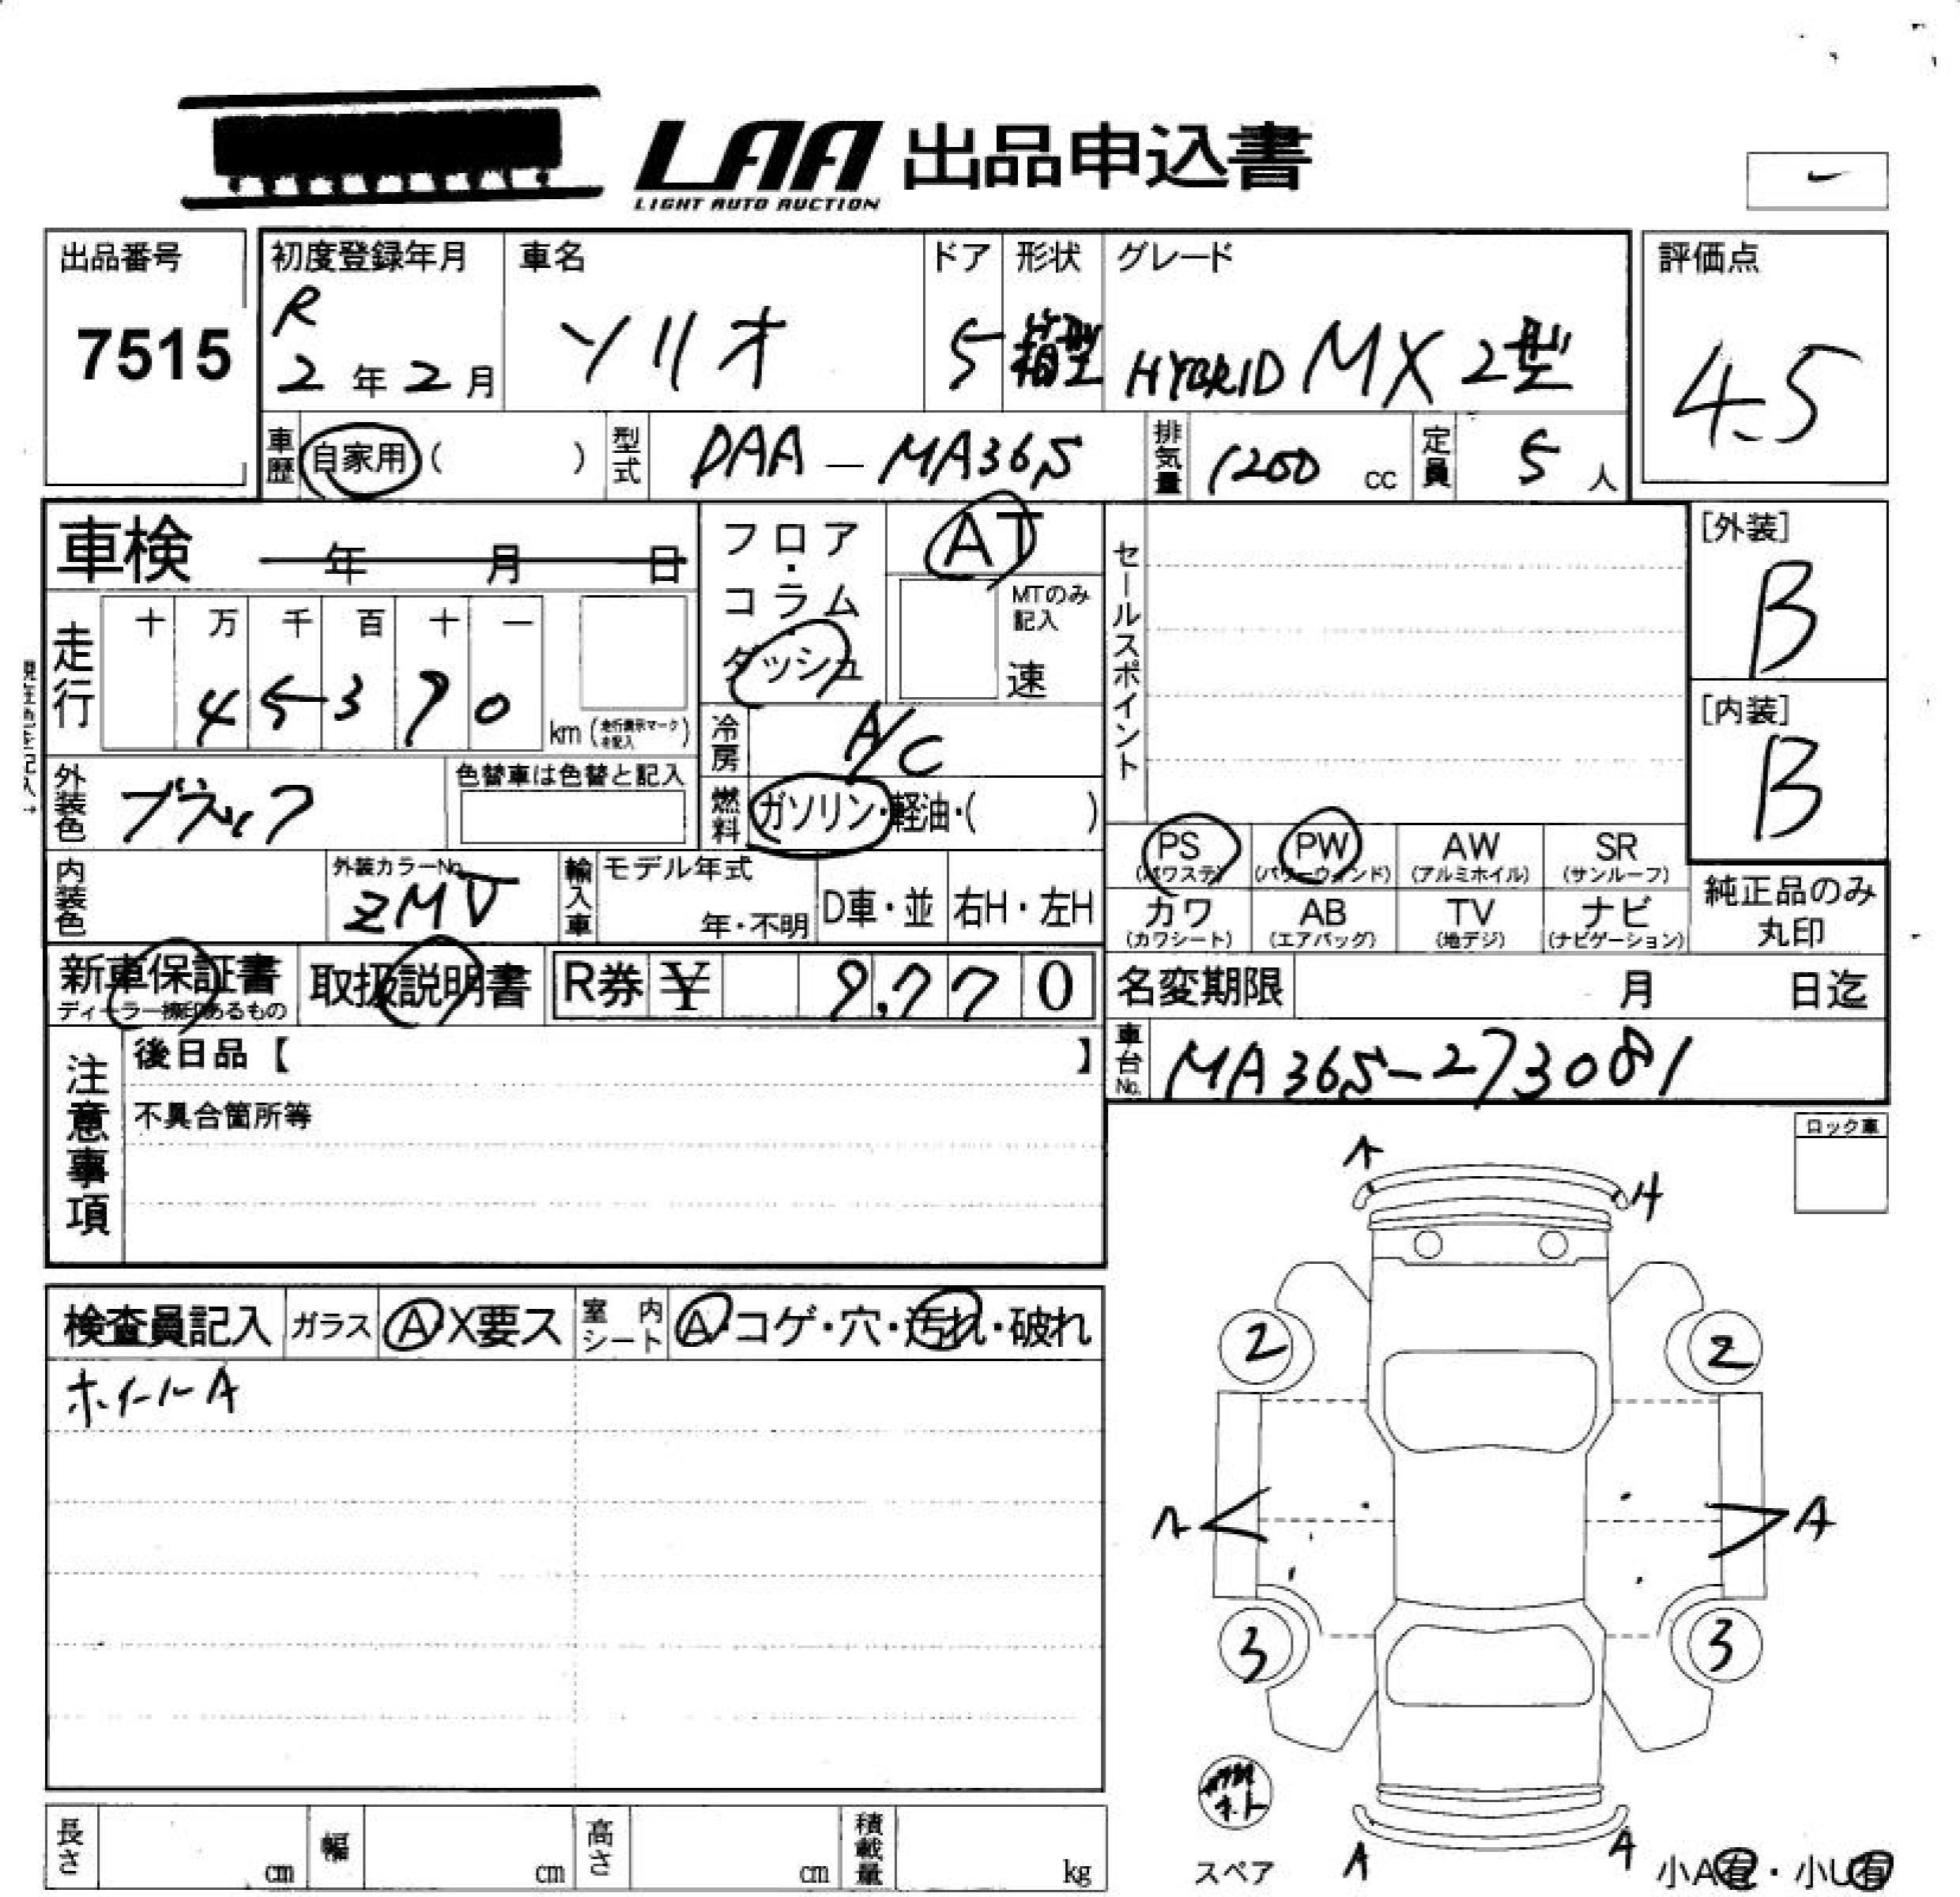 LAA 出品申込書
LIGHT AUTO AUCTION
出品番号
7515
初度登録年月
R
2年2月
車名
ソリオ
ドア
5
形状
箱型
グレード
HYBRID MX 2型
評価点
4.5
車歴
自家用( )
型式
DAA-MA36S
排気量
1200 cc
定員
5人
車検 年 月 日
フロア・コラム・ダッシュ
AT
MTのみ記入
速
セールスポイント
[外装]
B
[内装]
B
走行
十 万 千 百 十 一
4 5 3 9 0
km (走行表示マークを記入)
冷房
A/C
外装色
ブラック
色替車は色替と記入
燃料
ガソリン・軽油・( )
内装色
外装カラーNo.
ZMV
輸入車
モデル年式
年・不明
D車・並
右H・左H
PS
(パワステ)
PW
(パワーウィンド)
AW
(アルミホイル)
SR
(サンルーフ)
カワ
(カワシート)
AB
(エアバッグ)
TV
(地デジ)
ナビ
(ナビゲーション)
純正品のみ
丸印
新車保証書
ディーラー捺印あるもの
取扱説明書
R券 ¥ 9,770
名変期限 月 日迄
車台No.
MA36S-273081
注意事項
後日品【 】
不具合箇所等
ロック車
検査員記入
ガラス
A X要ス
室内シート
A・コゲ・穴・汚れ・破れ
ホイールA
A
A
2
2
A
A
3
3
スペア
A
A
小A有・小U有
長さ cm
幅 cm
高さ cm
積載量 kg